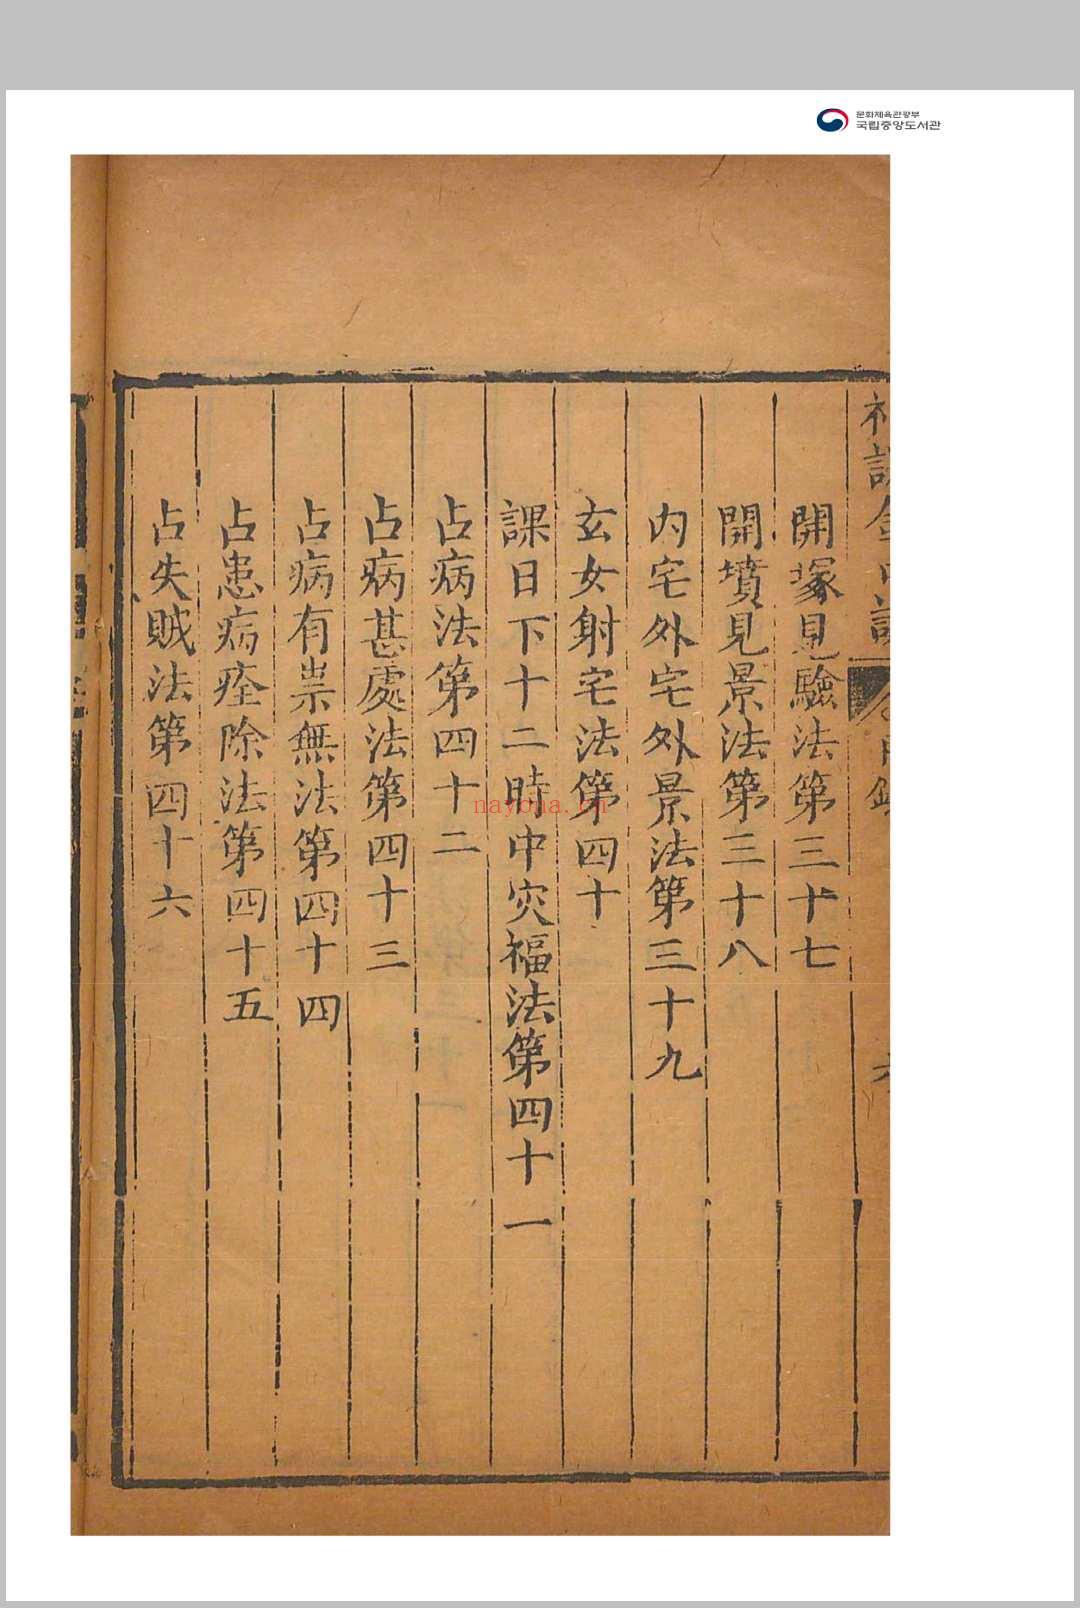 문화체육관광부
국립중앙도서관
開塚見驗法第三十七
開墳見景法第三十八
内宅外宅外景法第三十九
玄女射宅法第四十
課日下十二時中灾福法第四十一
占病法第四十二
占病甚處法第四十三
占病有祟無法第四十四
占患病痊除法第四十五
占失賊法第四十六
nayona.cn